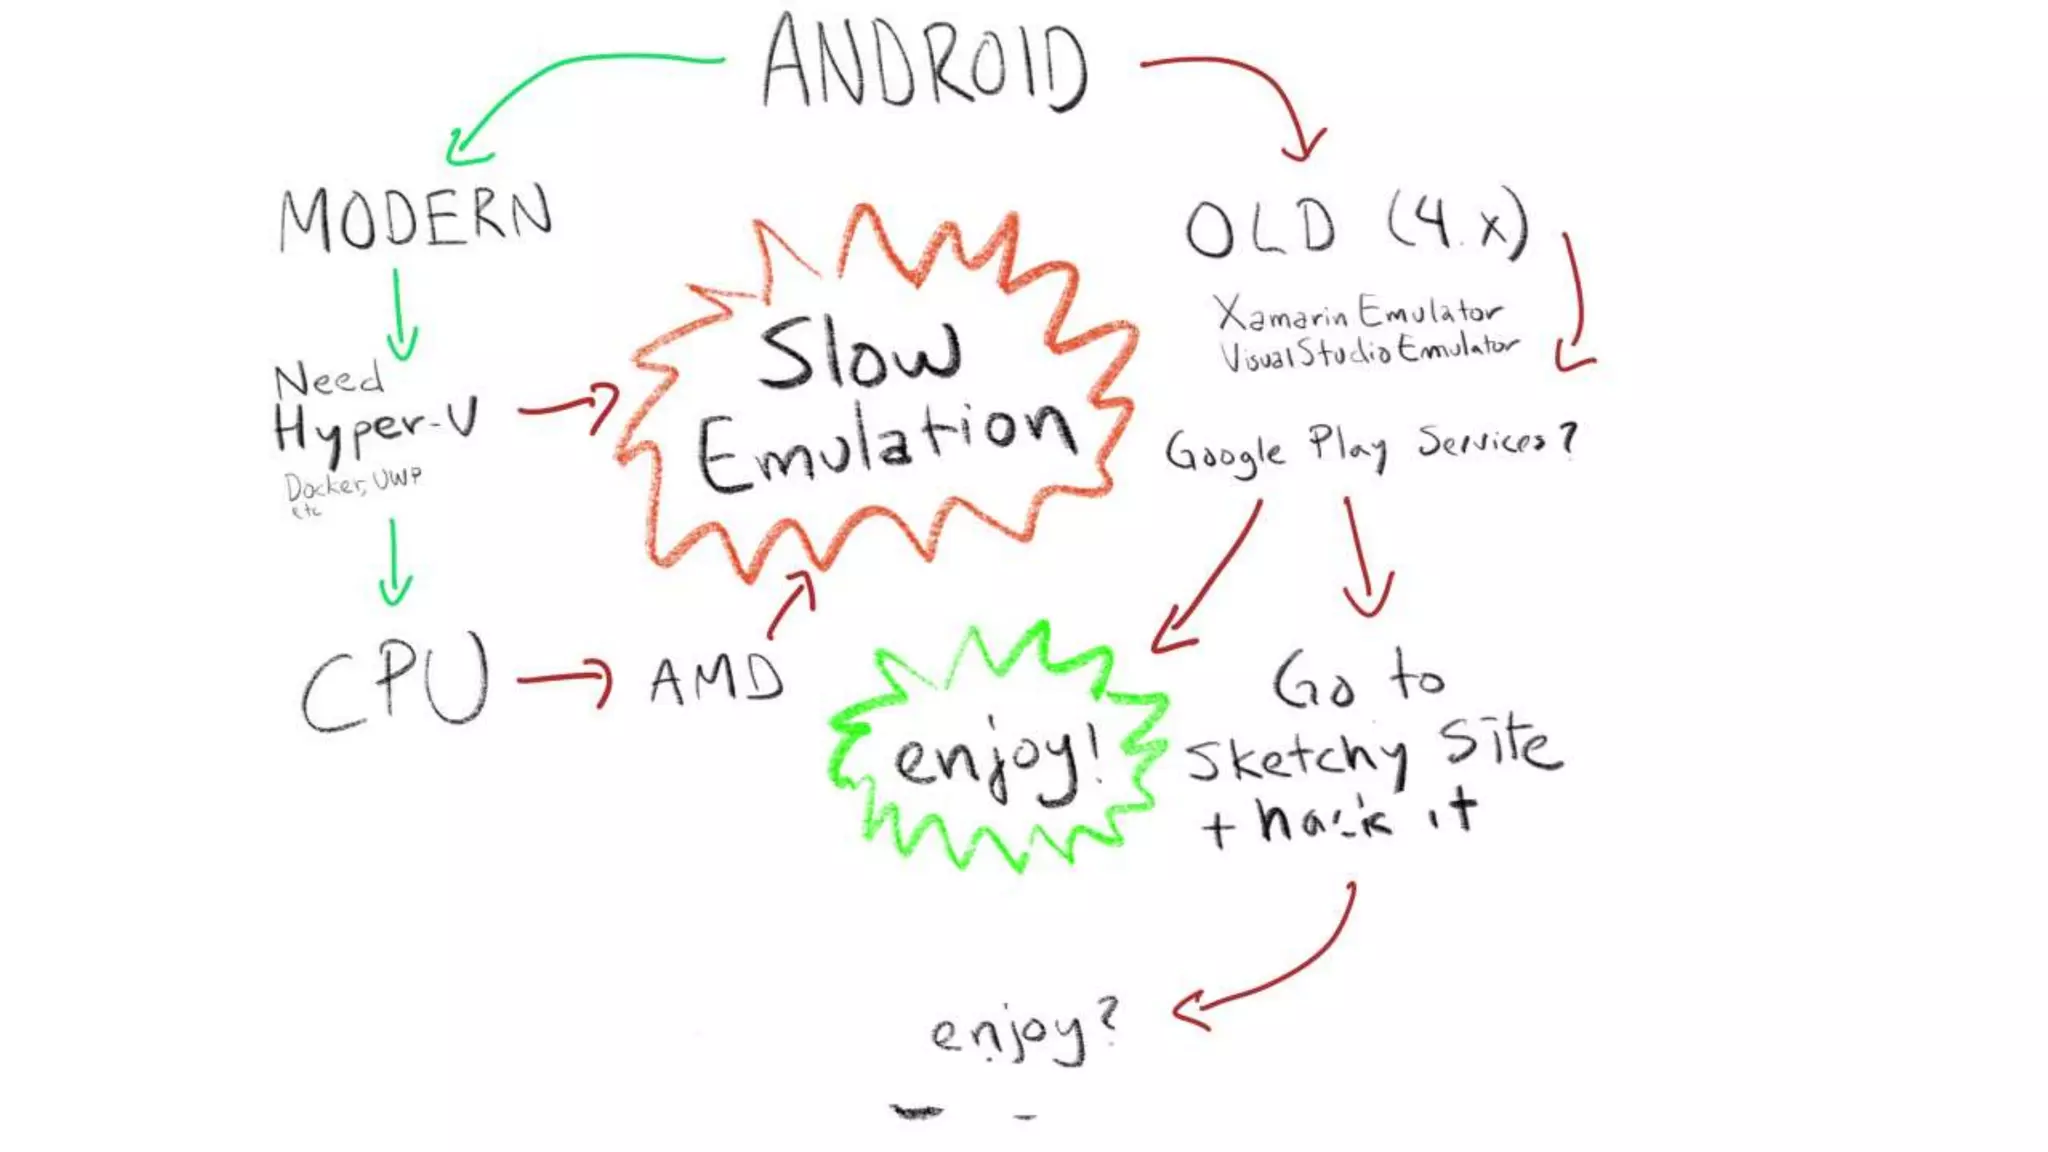 ANDROID
MODERN
OLD (4.x)
Xamarin Emulator
Visual Studio Emulator
Need
Hyper-V
Docker, UWP
etc
Slow
Emulation
Google Play Services?
CPU
AMD
enjoy!
Go to
Sketchy Site
+ hack it
enjoy?